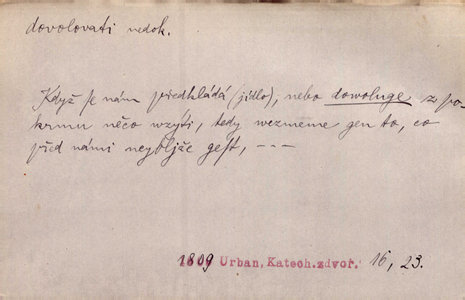 dovolovati nedok.
Když se nám předkládá (jídlo), nebo dowoluge z po-
krmu něco wzýti, tedy wezmeme gen to, co
před námi neybljže gest, ---
1809 Urban, Katech. zdvoř. 16, 23.